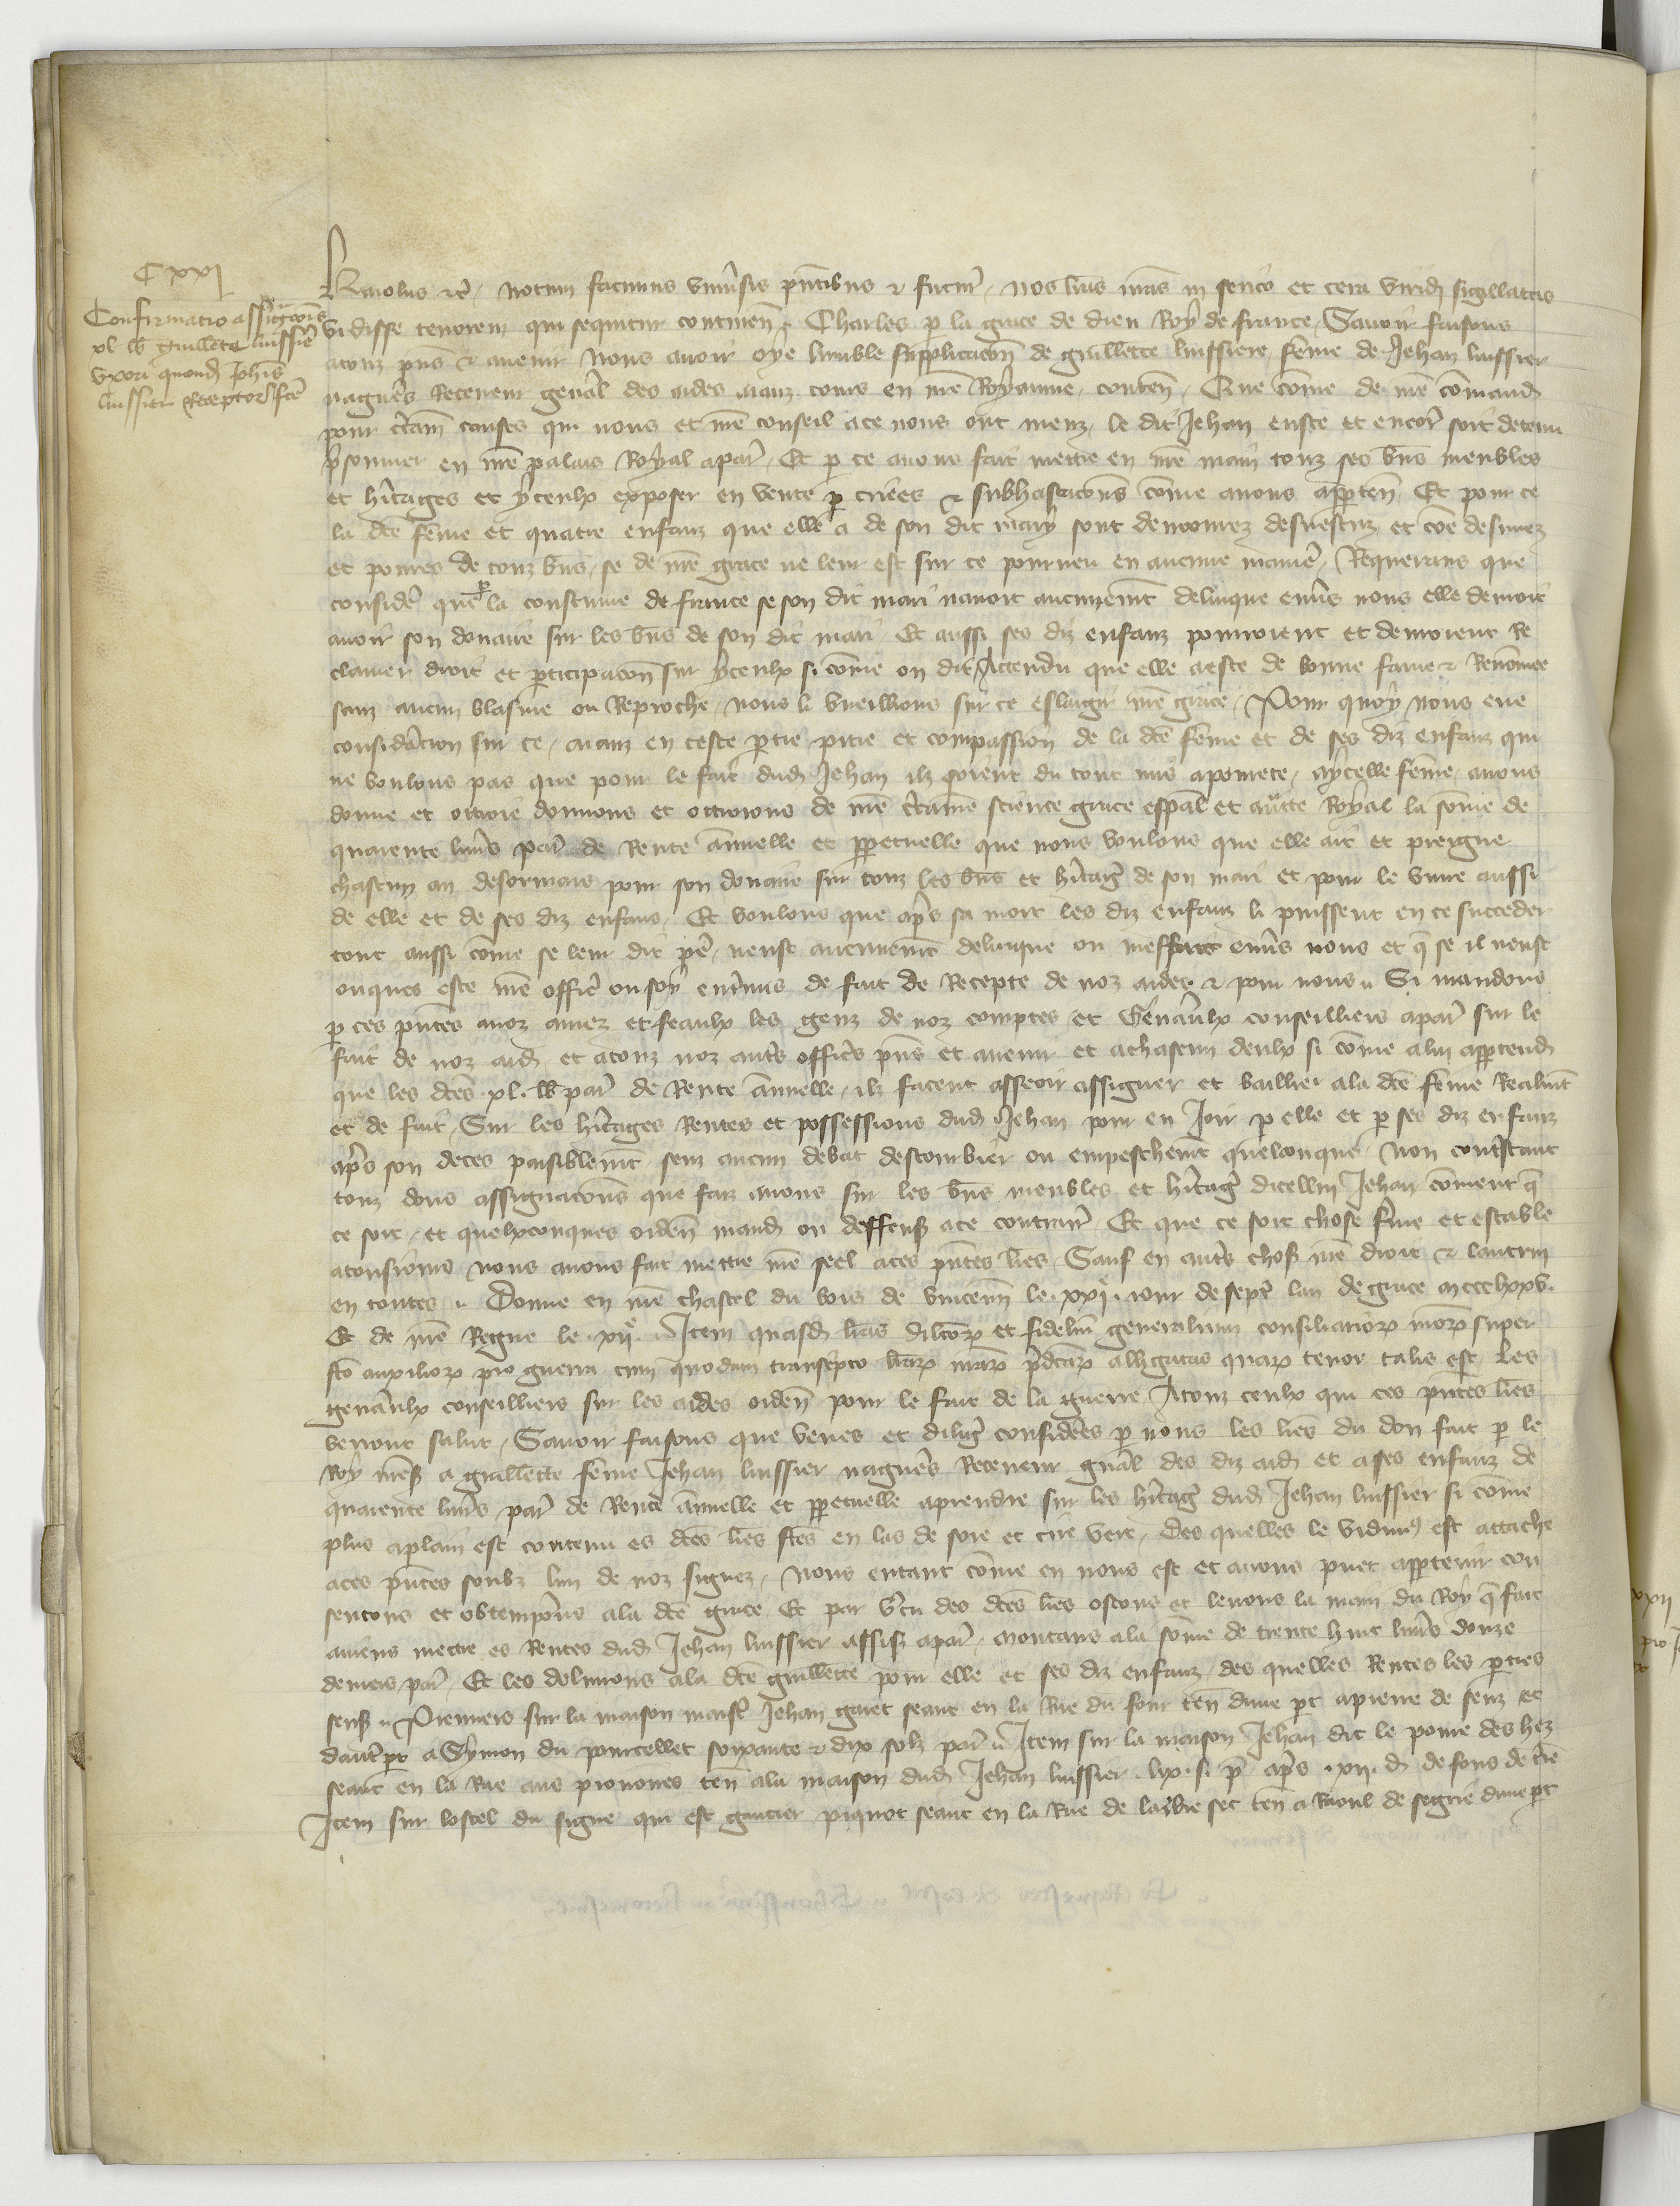 C xxj
Confirmatio assignacōis
xl lb guillete luissiē
uxori quond Johis
luissier Receptor
Karolus etc. Notum facimus univsis pntibus et futur. nos lras nras in serico et cera viridi sigillatas
vidisse tenorem qui sequitur continen. Charles p la grace de dieu Roy de france. Savoir faisons
a touz pns et avenir Nous avoir oye lumble supplicacon de guillette luissiere feme de Jehan luissier
nagueres Receveur genal des aides aianz cours en nre Royaume. conten. Que come de nre comand
pour ctain causes qui nous et nre conseil a ce nous ont meuz, le dit Jehan eust este et encor soit detenu
prisonnier en nre palais Royal a par. Et p ce avons fait mettre en nre main touz ses bns meubles
et hitages et yceulx exposer en vente p criees et subhastacons come avons apparten. Et pour ce
la dce feme et quatre enfanz que elle a de son dit mary sont demourez desvestuz et coe desnuez
et povres de touz bns, se de nre grace ne leur est sur ce pourveu en aucune manie. Requerans que
consider que p la coustume de france se son dit mari navoit aucunement delinque envs nous elle devroit
avoir son douaire sur les bns de son dit mari. Et aussi ses diz enfanz pourroient et devroient Re
clamer droit et pticipacon sur yceulx si come on dit. Attendu que elle a este de bonne fame et Renomee
sanz aucun blasme ou Reproche, nous li vueillions sur ce eslargir nre grace. Pour quoy nous eue
consideracion sur ce, aianz en ceste ptie pitie et compassion de la dce feme et de ses diz enfanz qui
ne voulons pas que pour le fait dud Jehan ilz soient du tout mis a povrete, a ycelle feme avons
donne et ottroie donnons et ottroions de nre ctaine science grace espal et autte Royal la some de
quarente livrs par de Rente annuelle et ppetuelle que nous voulons que elle ait et preigne
chascun an desormais pour son douaire sur touz les bns et hitag de son mari et pour le vivre aussi
de elle et de ses diz enfans. Et voulons que aps sa mort les diz enfanz li puissent en ce succeder
tout aussi come se leur dit pe neust aucunement delinque ou meffait envs nous et q se il neust
onques este nre officr ou soy entrmis de fait de Recepte de noz aides et pour nous. Si mandons
p ces pntes a noz amez et feaulx les genz de noz comptes et Genaulx conseilliers a par sur le
fait de noz aid et a touz noz autrs officrs pns et avenir et a chascun deulx si come a lui appartend
que les dces .xl. lb par de Rente annuelle, ilz facent asseoir assigner et baillier a la dce feme Realment
et de fait. Sur les hitages Rentes et possessions dud Jehan pour en Joir p elle et p ses diz enfanz
aps son deces paisiblement senz aucun debat destourbier ou empeschement quelconque. Non contstant
touz dons assignacons que faiz avons sur les bns meubles et hitag dicellui Jehan coment q
ce soit, et quelxconques orden mand ou deffenses a ce contrair. Et que ce soit chose ferme et estable
a tousiours nous avons fait mettre nre seel a ces pntes lres. Sauf en autrs choses nre droit et lautrui
en toutes. Donne en nre chastel du bois de vincenn le .xxije. jour de septe lan de grace mccclxxv.
Et de nre Regne le .xije. Item quasd lras dilcor et fidelium generalium consiliarior nror super
fco auxilior pro guerra cum quodam transcpto lrar nrar pdcar alligatas quar tenor talis est. Les
genaulx conseilliers sur les aides orden pour le fait de la guerre. A touz ceulx qui ces pntes lres
verront salut. Savoir faisons que veues et dilig considees p nous les lres du don fait p le
Roy nres a guillette feme Jehan luissier nagueres Receveur gnal des diz aid et a ses enfanz de
quarente livrs par de Rente annuelle et ppetuelle a prendre sur les hitag dud Jehan luissier si come
plus a plain est contenu es dces lres fces en las de soie et cire vert. des quelles le vidimus est attache
a ces pntes soubz lun de noz signez. Nous entant come en nous est et avons puet appartenir con
sentons et obtemperons a la dce grace. Et par vtu des dces lres ostons et levons la main du Roy q fait
aviens mettre es Rentes dud Jehan luissier assises a par. montans a la some de trente huit livrs douze
deniers par. Et les delivrons a la dce guillette pour elle et ses diz enfanz. des quelles Rentes les pties
sens. Premiers sur la maison maist Jehan garet seant en la Rue du four ten dune pt a pierre de senz et
dautre pt a Symon du pourcellet soixante et dix solz par. Item sur la maison Jehan dit le povre des hez
seant en la Rue aus prouvoires ten a la maison dud Jehan luissier .lx. s. p aps .xij. d de fons de tre
Item sur lostel du signe qui est gautier piquot seant en la Rue de larbre sec ten a Raoul de segrie dune pt